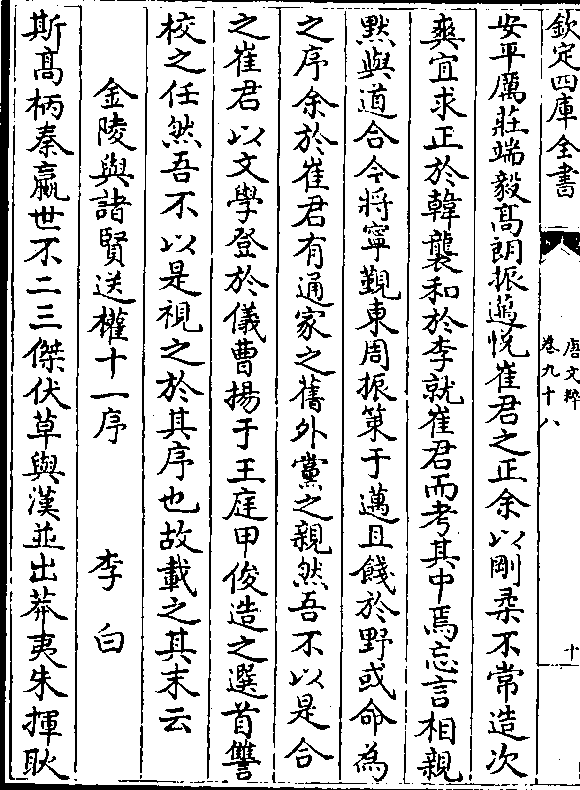 欽定四庫全書
唐文粹
卷九十八
十
安平厲莊端毅髙朗振邁悅崔君之正余以剛柔不常造次
爽宜求正於韓襲和於李就崔君而考其中焉忘言相親
黙與道合今將寧覲東周振策于邁且餞於野或命為
之序余於崔君有通家之舊外黨之親然吾不以是合
之崔君以文學登於儀曹揚于王庭甲俊造之選首讐
校之任然吾不以是視之於其序也故載之其末云
金陵與諸賢送權十一序 李白
斯髙柄秦嬴世不二三傑伏草與漢並出莽夷朱揮耿